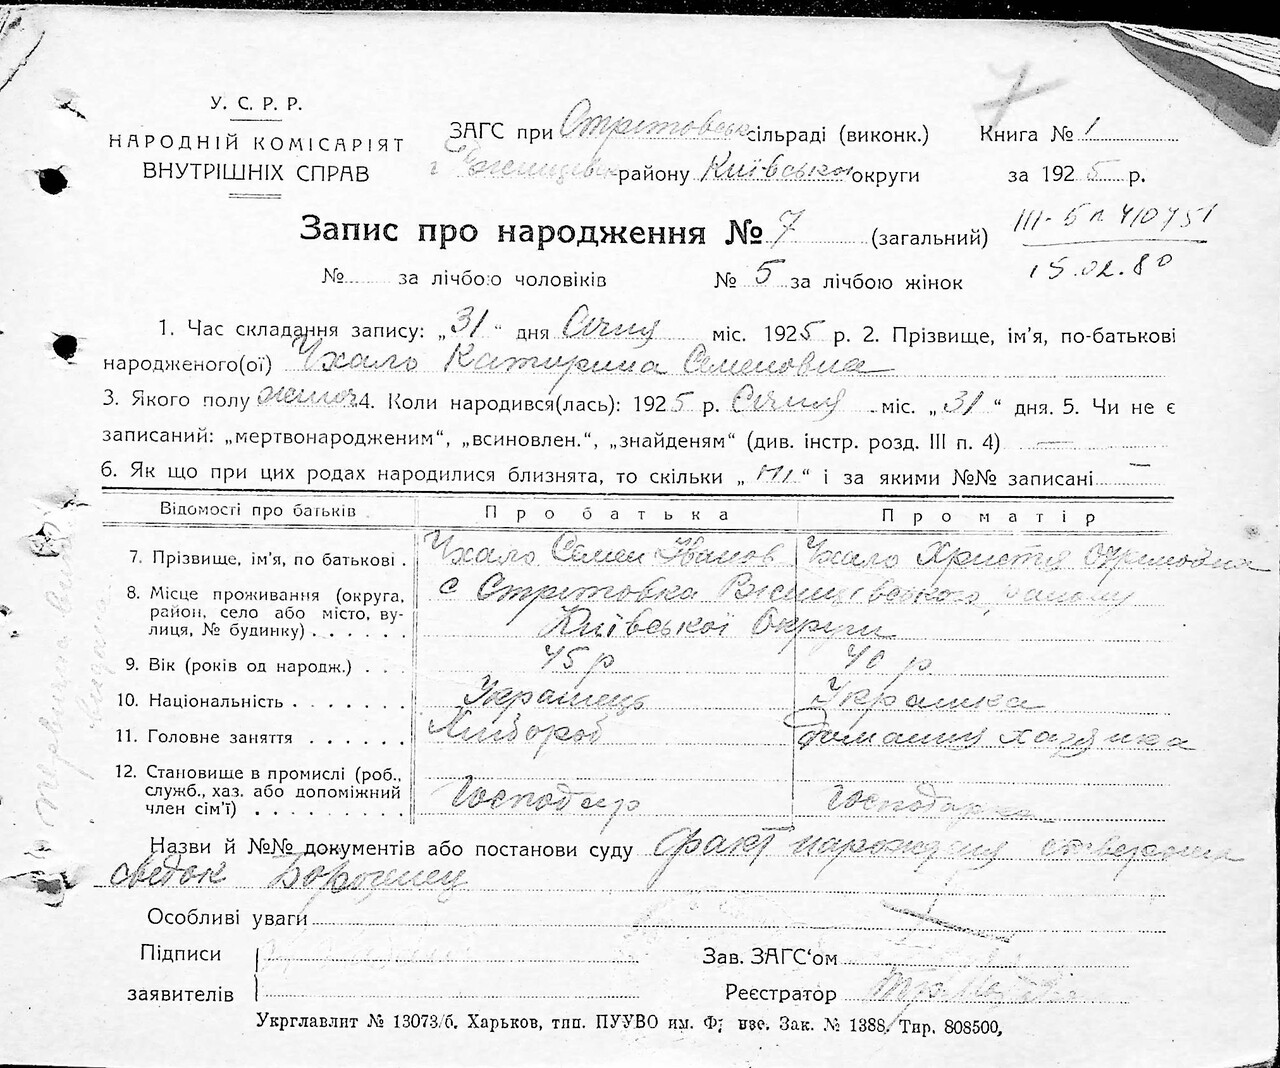 7
У. С. Р. Р.
НАРОДНІЙ КОМІСАРІЯТ
ВНУТРІШНІХ СПРАВ
ЗАГС при Стрітовськ сільраді (виконк.)
району Київської округи
Книга № 1
за 1925 р.
Запис про народження № 7 (загальний)
III-БК 410751
15.02.80
№ за лічбою чоловіків № 5 за лічбою жінок
1. Час складання запису: „31“ дня Січня міс. 1925 р. 2. Прізвище, ім’я, по-батькові
народженого(ої) Чхало Катирина Семеновна
3. Якого полу жіноч 4. Коли народився(лась): 1925 р. Січня міс. „31“ дня. 5. Чи не є
записаний: „мертвонародженим“, „всиновлен.“, „знайденям“ (див. інстр. розд. III п. 4) —
6. Як що при цих родах народилися близнята, то скільки „ “ і за якими №№ записані —
Відомості про батьків Про батька Про матір
7. Прізвище, ім’я, по батькові . Чхало Семен Іванов Чхало Христя
8. Місце проживання (округа, район, село або місто, вулиця, № будинку) . . . . . . с Стрітовка району
Київської Округи
9. Вік (років од народж.) . . . 45 р 40 р
10. Національність . . . . . . . Українець Українка
11. Головне заняття . . . . . . Хлібороб Домашня хазяйка
12. Становище в промислі (роб., служб., хаз. або допоміжний член сім’ї) . . . . . . . . . Господар Господарка
Назви й №№ документів або постанови суду факт народження
свідок
Особливі уваги
Підписи
заявителів
Зав. ЗАГС‘ом
Реєстратор
Укрглавлит № 13073/б. Харьков, тип. ПУУВО им. Фрунзе. Зак. № 1388. Тир. 808500,